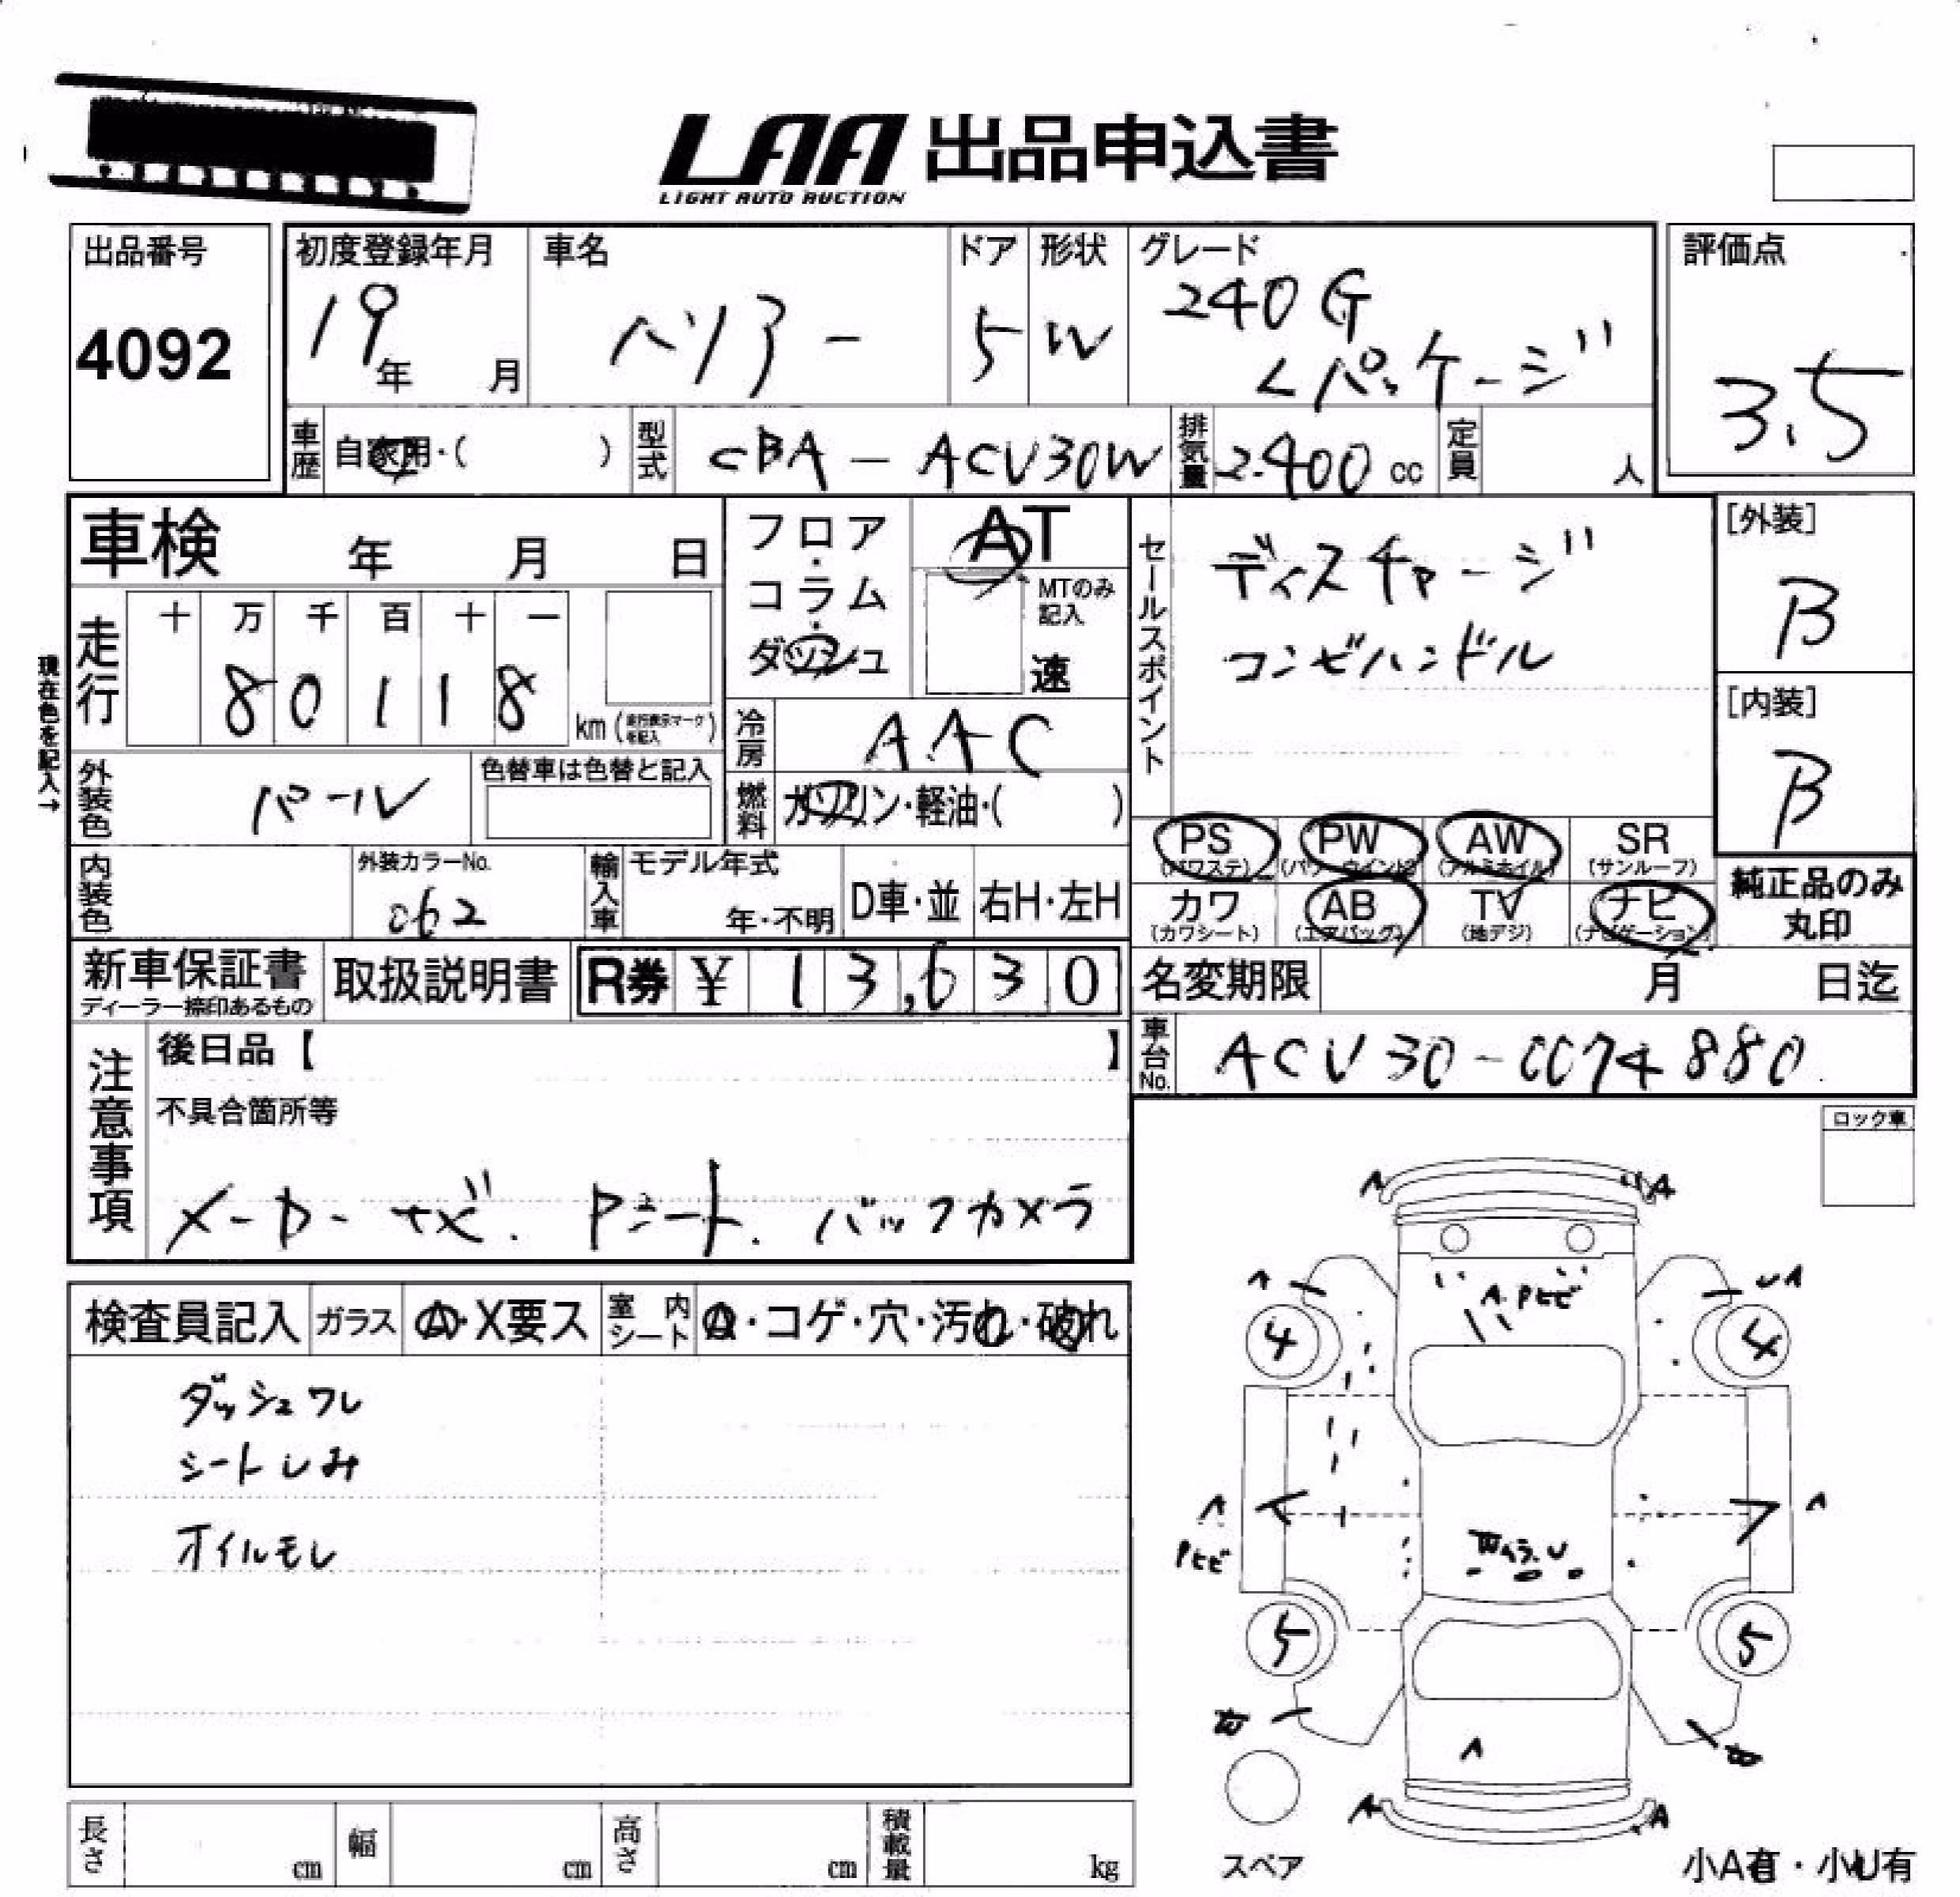 LAA 出品申込書
LIGHT AUTO AUCTION
出品番号
4092
初度登録年月
19年 月
車名
ハリアー
ドア
5
形状
W
グレード
240G
Lパッケージ
評価点
3.5
車歴 自家用・( )
型式 CBA-ACU30W
排気量 2400cc
定員 人
車検 年 月 日
フロア・コラム・ダッシュ
AT
MTのみ記入
速
セールスポイント
ディスチャージ
コンビハンドル
[外装]
B
[内装]
B
現在色を記入→
走行
十 万 千 百 十 一
8 0 1 1 8
km(走行表示マークを記入)
冷房 AAC
外装色 パール
色替車は色替と記入
燃料 ガソリン・軽油・( )
PS (パワステ)
PW (パワーウインド)
AW (アルミホイル)
SR (サンルーフ)
カワ (カワシート)
AB (エアバッグ)
TV (地デジ)
ナビ (ナビゲーション)
純正品のみ
丸印
内装色
外装カラーNo.
062
輸入車
モデル年式
年・不明
D車・並
右H・左H
新車保証書
ディーラー捺印あるもの
取扱説明書
R券 ¥ 13,630
名変期限 月 日迄
車台No. ACU30-0074880
注意事項
後日品【 】
不具合箇所等
メーカーナビ. Pシート. バックカメラ
ロック車
検査員記入
ガラス
A・X要ス
室内シート
A・コゲ・穴・汚れ・破れ
ダッシュワレ
シートしみ
オイルモレ
A
A
A
UA
A.Pヒビ
4
4
A
Pヒビ
A
5
5
W
W
A
A
A
スペア
小A有・小U有
長さ cm
幅 cm
高さ cm
積載量 kg